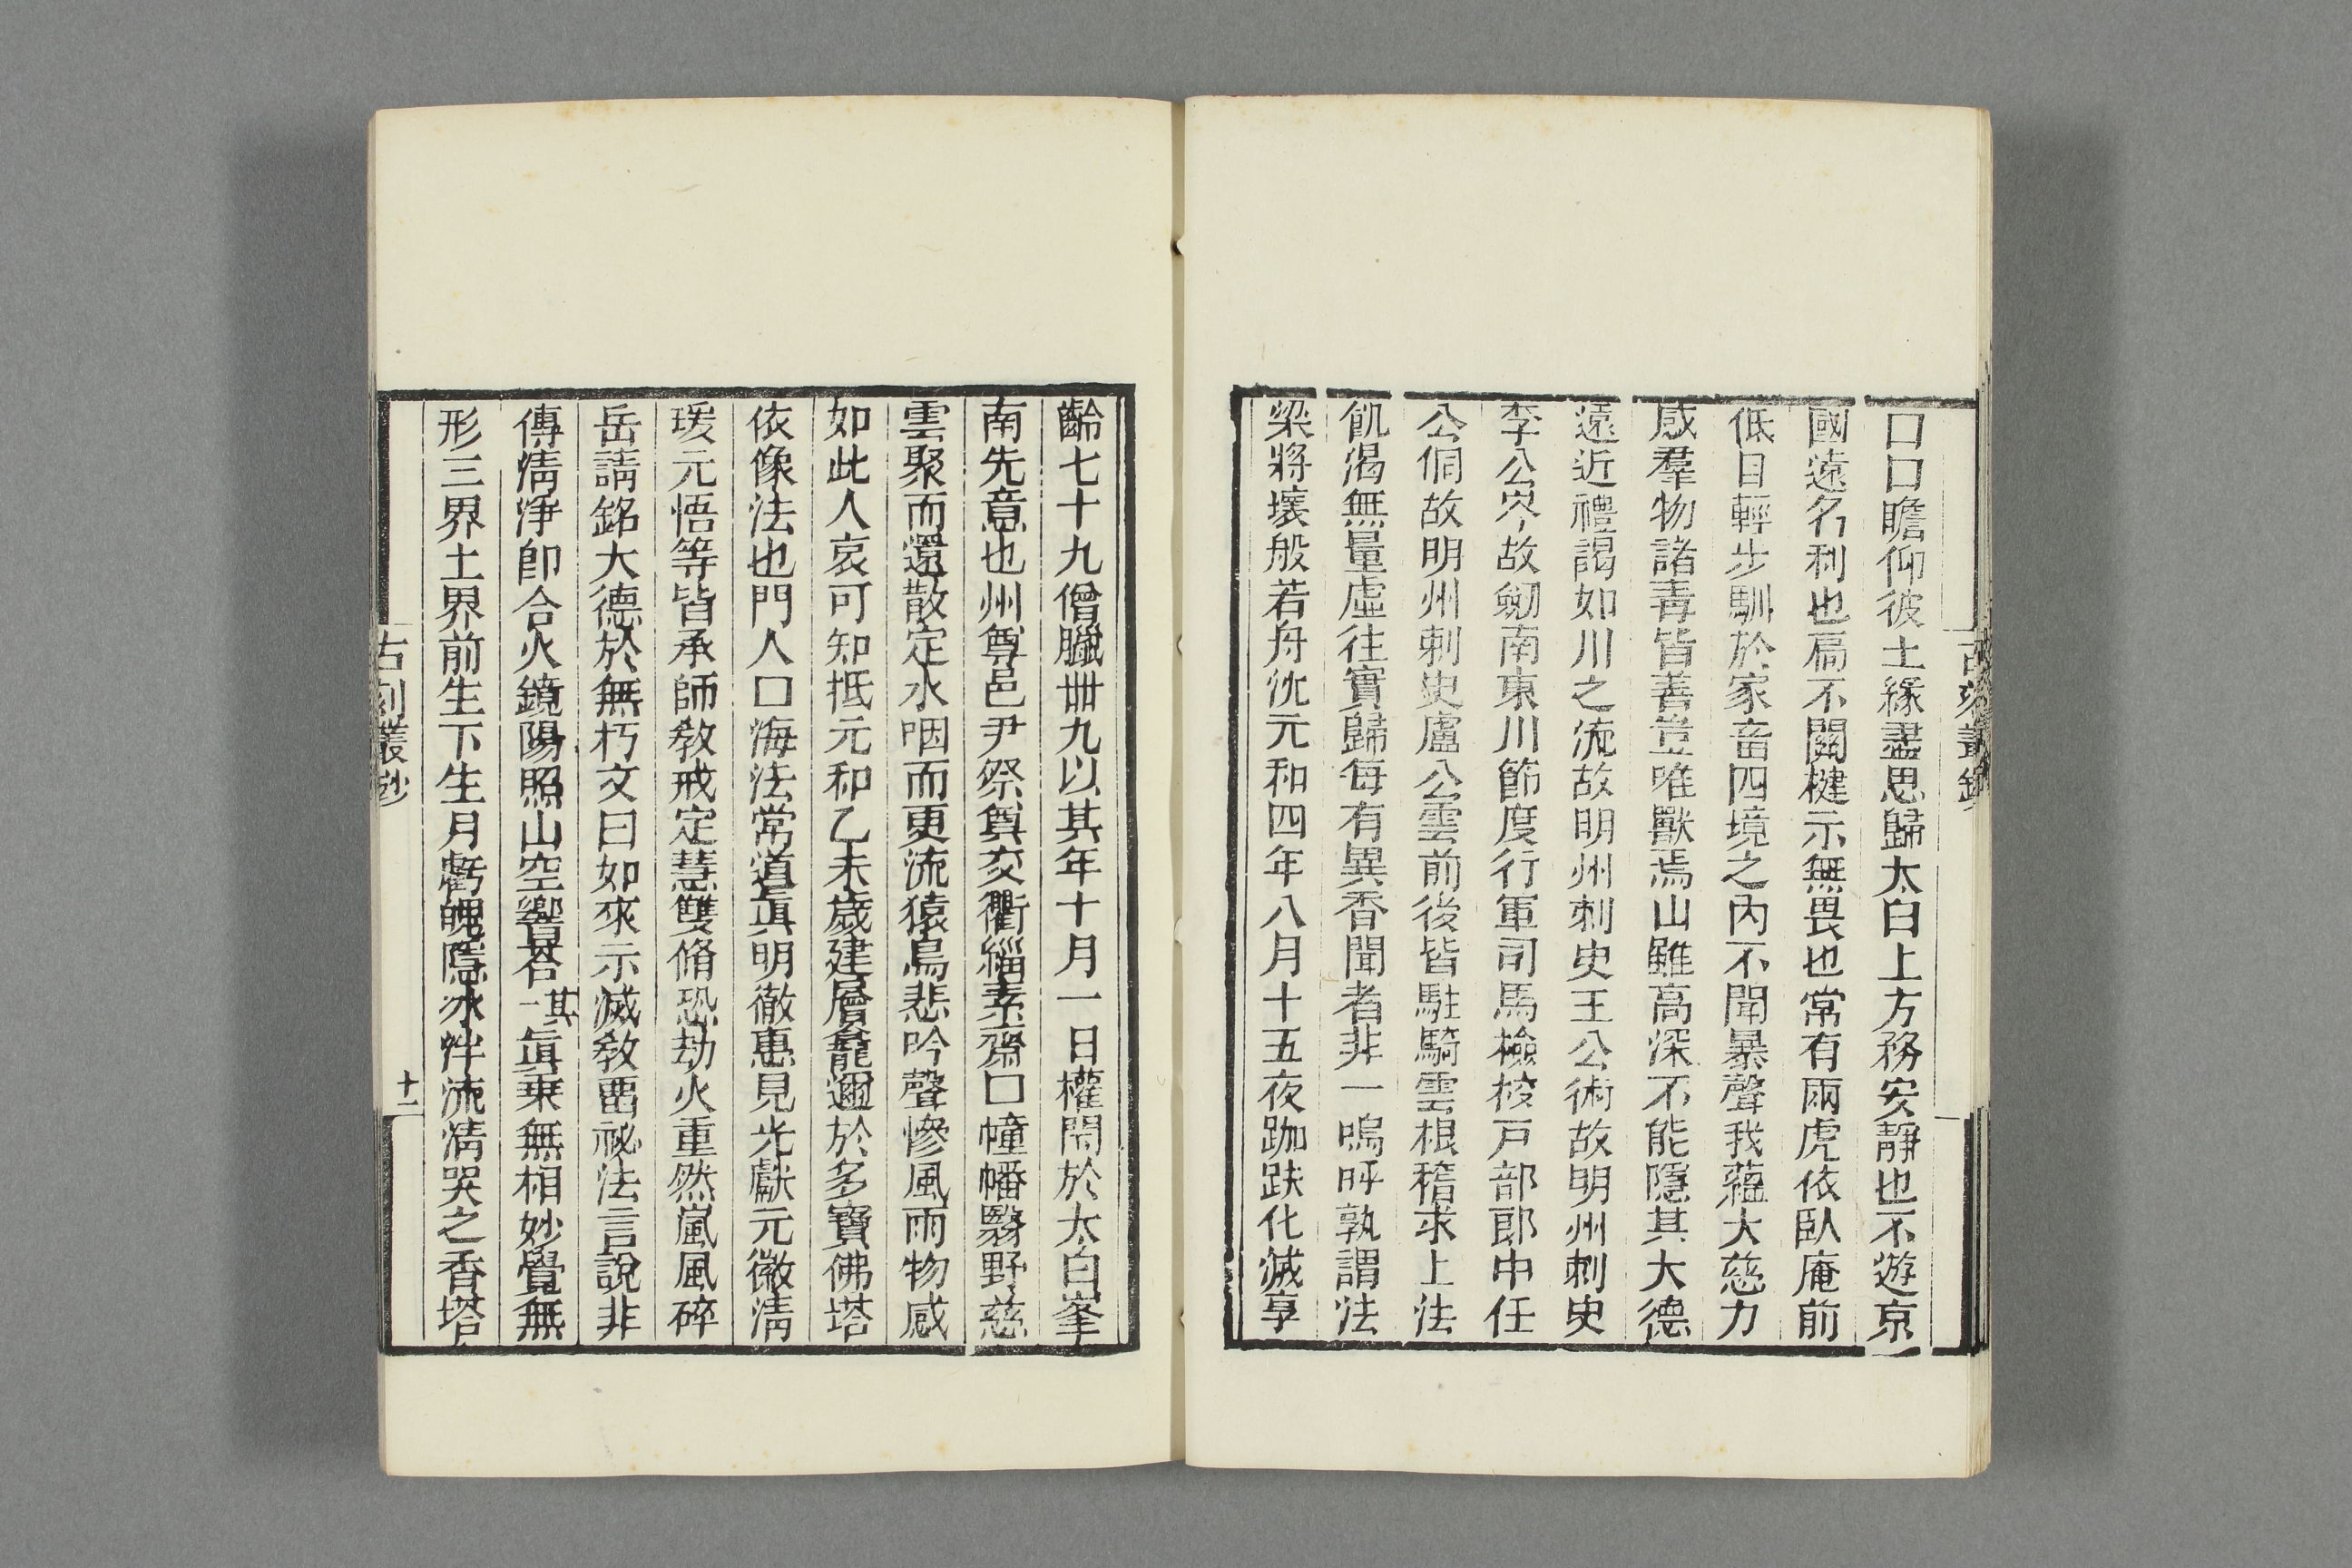 囗囗瞻仰彼土緣盡思歸太白上方務安靜也不遊京
國遠名利也扃不關楗示無畏也常有兩虎依臥庵前
低目輕步馴於家畜四境之內不聞暴聲我蘊大慈力
感羣物諸毒皆善豈唯獸焉山雖高深不能隱其大德
遠近禮謁如川之流故明州刺史王公術故明州刺史
李公㟧故劒南東川節度行軍司馬檢挍戸部郎中任
公侗故明州刺史盧公雲前後皆駐騎雲根稽求上法
飢渴無量虛往實歸每有異香聞者非一嗚呼孰謂法
梁將壞般若舟沈元和四年八月十五夜跏趺化滅享
齡七十九僧臘卌九以其年十月一日權閉於太白峯
南先意也州尊邑尹祭奠交衢緇素齋囗幢幡翳野慈
雲聚而還散定水咽而更流猿鳥悲吟聲慘風雨物感
如此人哀可知抵元和乙未歲建層龕邇於多寶佛塔
依像法也門人囗海法常道眞明徹惠見光獻元徽淸
瑗元悟等皆承師敎戒定慧雙脩恐劫火重然嵐風碎
岳請銘大德於無朽文曰如來示滅敎畱祕法言說非
傳淸淨卽合火鏡陽照山空響荅其一眞乗無相妙覺無
形三界土界前生下生月虧魄隱冰泮流淸哭之香塔
古刻叢鈔
十二